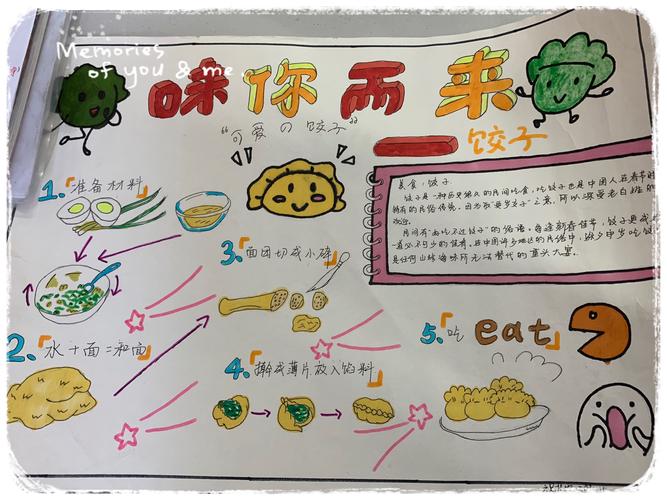 Memories
of you & me.
味你而来
"可爱の饺子"
饺子
1.「准备材料」
美食:饺子.
饺子是一种历史悠久的民间吃食,吃饺子也是中国人在春节时
特有的民俗传统.因为取"更岁交子"之意,所以深受老百姓的
欢迎.
民间有"好吃不过饺子"的俗语.每逢新春佳节,饺子更成为
一道必不可少的佳肴.在中国许多地区的民俗中,除夕守岁吃饺
是任何山珍海味所无法替代的重头大宴.
3.「面团切成小碎」
2.「水+面=和面」
4.「擀成薄片放入馅料」
5.「吃」eat